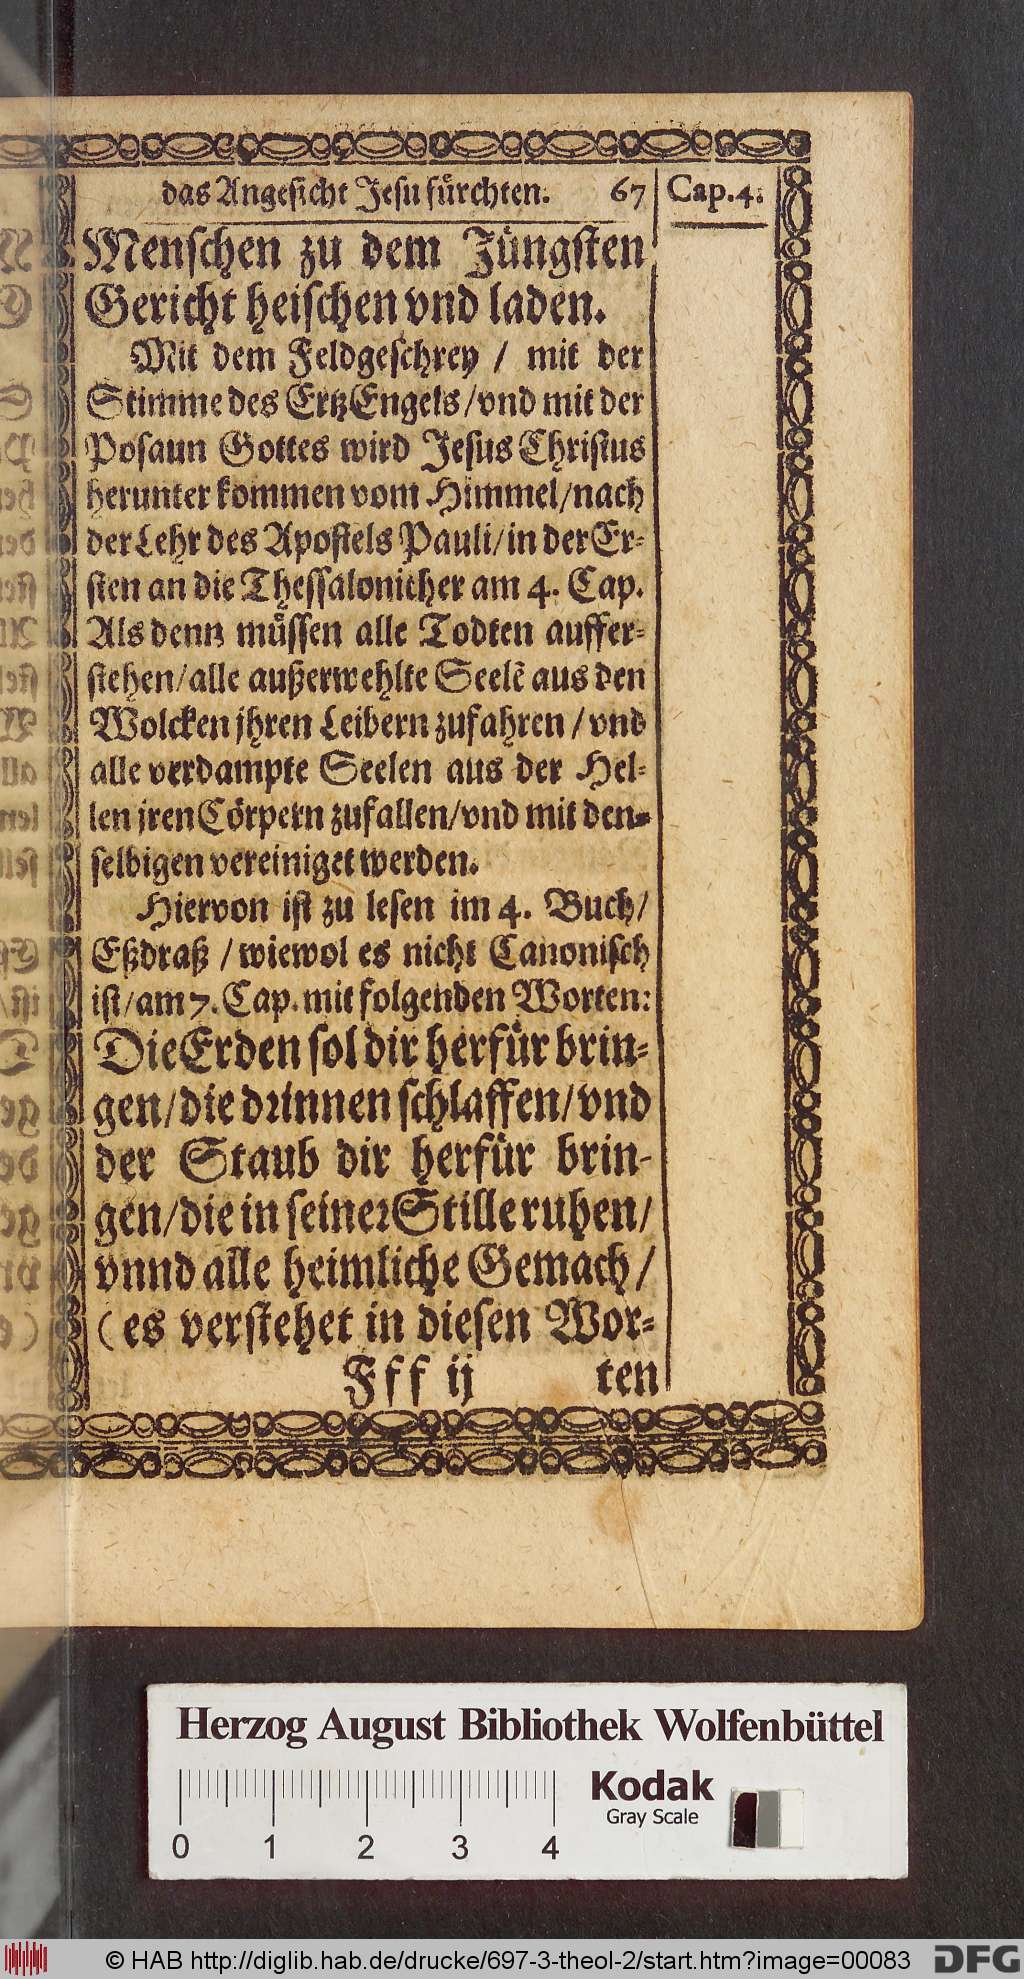 das Angesicht Jesu fürchten. 67 Cap. 4.
Menschen zu dem Jüngsten
Gericht heischen vnd laden.
Mit dem Feldgeschrey / mit der
Stimme des ErtzEngels / vnd mit der
Posaun Gottes wird Jesus Christus
herunter kommen vom Himmel / nach
der Lehr des Apostels Pauli / in der Er-
sten an die Thessalonicher am 4. Cap.
Als denn müssen alle Todten auffer-
stehen / alle außerwehlte Seelē aus den
Wolcken jhren Leibern zufahren / vnd
alle verdampte Seelen aus der Hel-
len jren Cörpern zufallen / vnd mit den-
selbigen vereiniget werden.
Hiervon ist zu lesen im 4. Buch /
Eßdraß / wiewol es nicht Canonisch
ist / am 7. Cap. mit folgenden Worten:
Die Erden sol dir herfür brin-
gen / die drinnen schlaffen / vnd
der Staub dir herfür brin-
gen / die in seiner Stille ruhen /
vnnd alle heimliche Gemach /
(es verstehet in diesen Wor-
Fff ij ten
Herzog August Bibliothek Wolfenbüttel
Kodak
Gray Scale
0 1 2 3 4
© HAB http://diglib.hab.de/drucke/697-3-theol-2/start.htm?image=00083 DFG